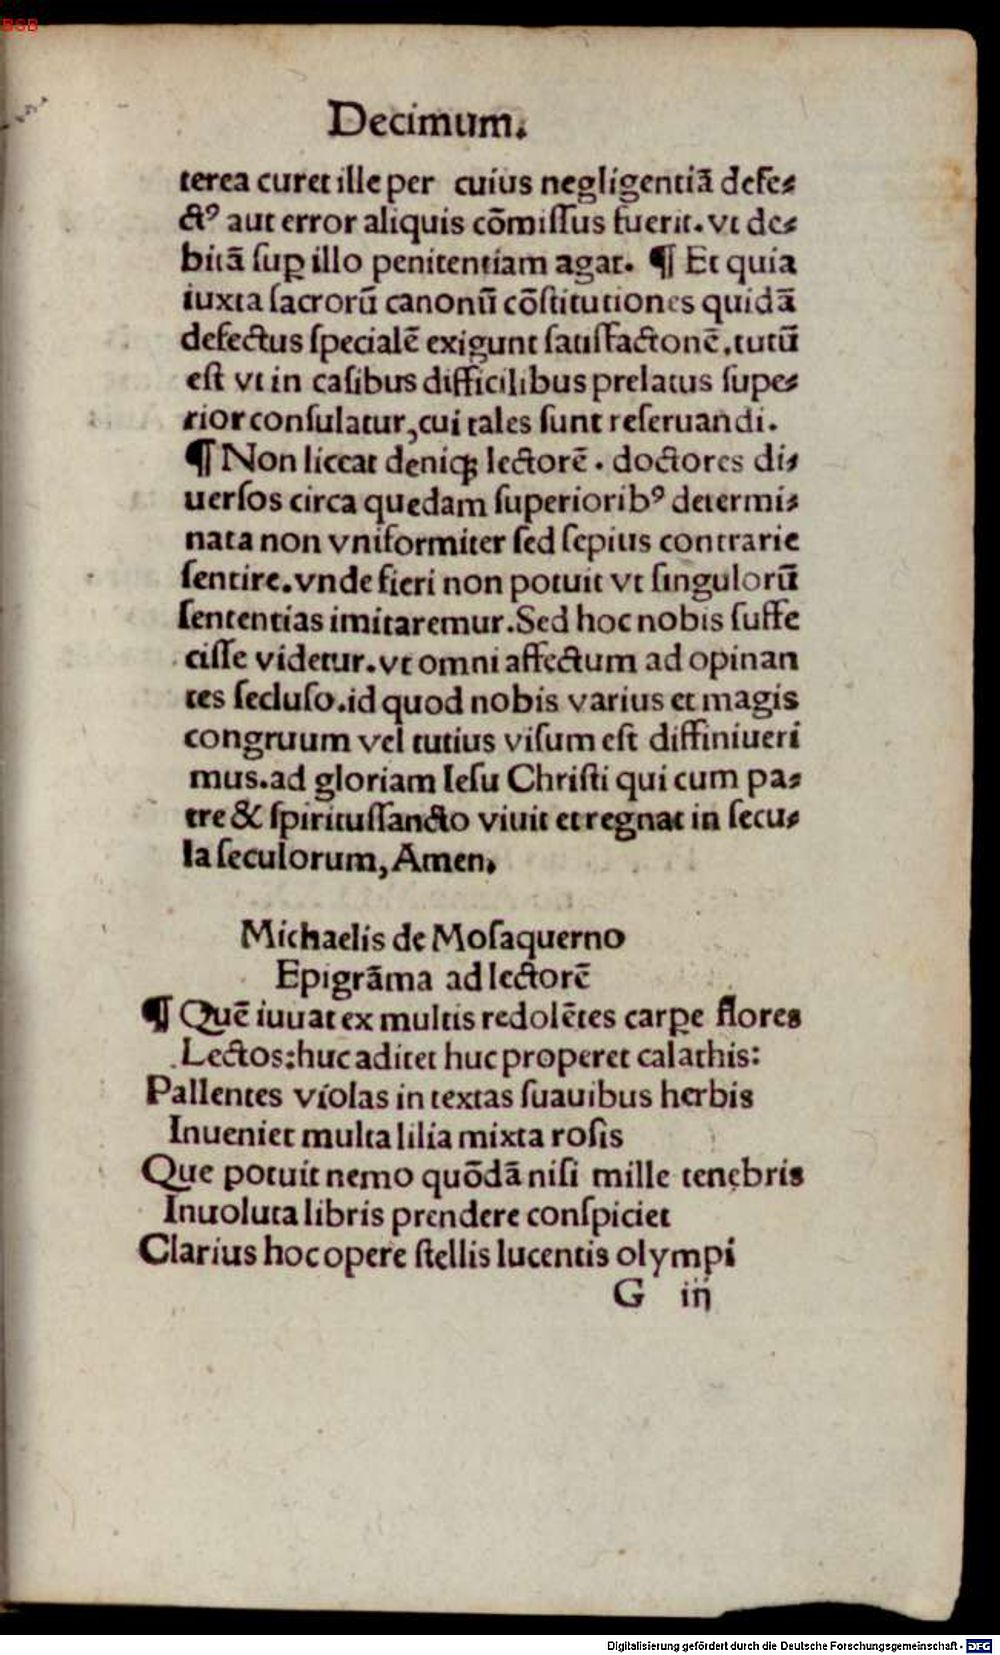 BSB
Decimum.
terea curet ille per cuius negligentiã defe⸗
ctꝰ aut error aliquis cõmiſſus fuerit. vt de⸗
bitã ſuꝑ illo penitentiam agat. ¶ Et quia
iuxta ſacrorũ canonũ cõſtitutiones quidã
defectus ſpecialẽ exigunt ſatiſfactonẽ. tutũ
eſt vt in caſibus difficilibus prelatus ſupe⸗
rior conſulatur, cui tales ſunt reſeruandi.
¶ Non liceat deniqꝫ lectorẽ. doctores di⸗
uerſos circa quedam ſuperioribꝰ determi⸗
nata non vniformiter ſed ſepius contrarie
ſentire. vnde fieri non potuit vt ſingulorũ
ſententias imitaremur. Sed hoc nobis ſuffe
ciſſe videtur. vt omni affectum ad opinan
tes ſecluſo. id quod nobis varius et magis
congruum vel tutius viſum eſt diffiniueri
mus. ad gloriam Ieſu Chriſti qui cum pa⸗
tre & ſpirituſſancto viuit et regnat in ſecu⸗
la ſeculorum, Amen.
Michaelis de Moſaquerno
Epigrãma ad lectorẽ
¶ Quẽ iuuat ex multis redolẽtes carpe flores
Lectos: huc aditet huc properet calathis:
Pallentes violas in textas ſuauibus herbis
Inueniet multa lilia mixta roſis
Que potuit nemo quõdã niſi mille tenębris
Inuoluta libris prendere conſpiciet
Clarius hoc opere ſtellis lucentis olympi
G iij
Digitalisierung gefördert durch die Deutsche Forschungsgemeinschaft - DFG